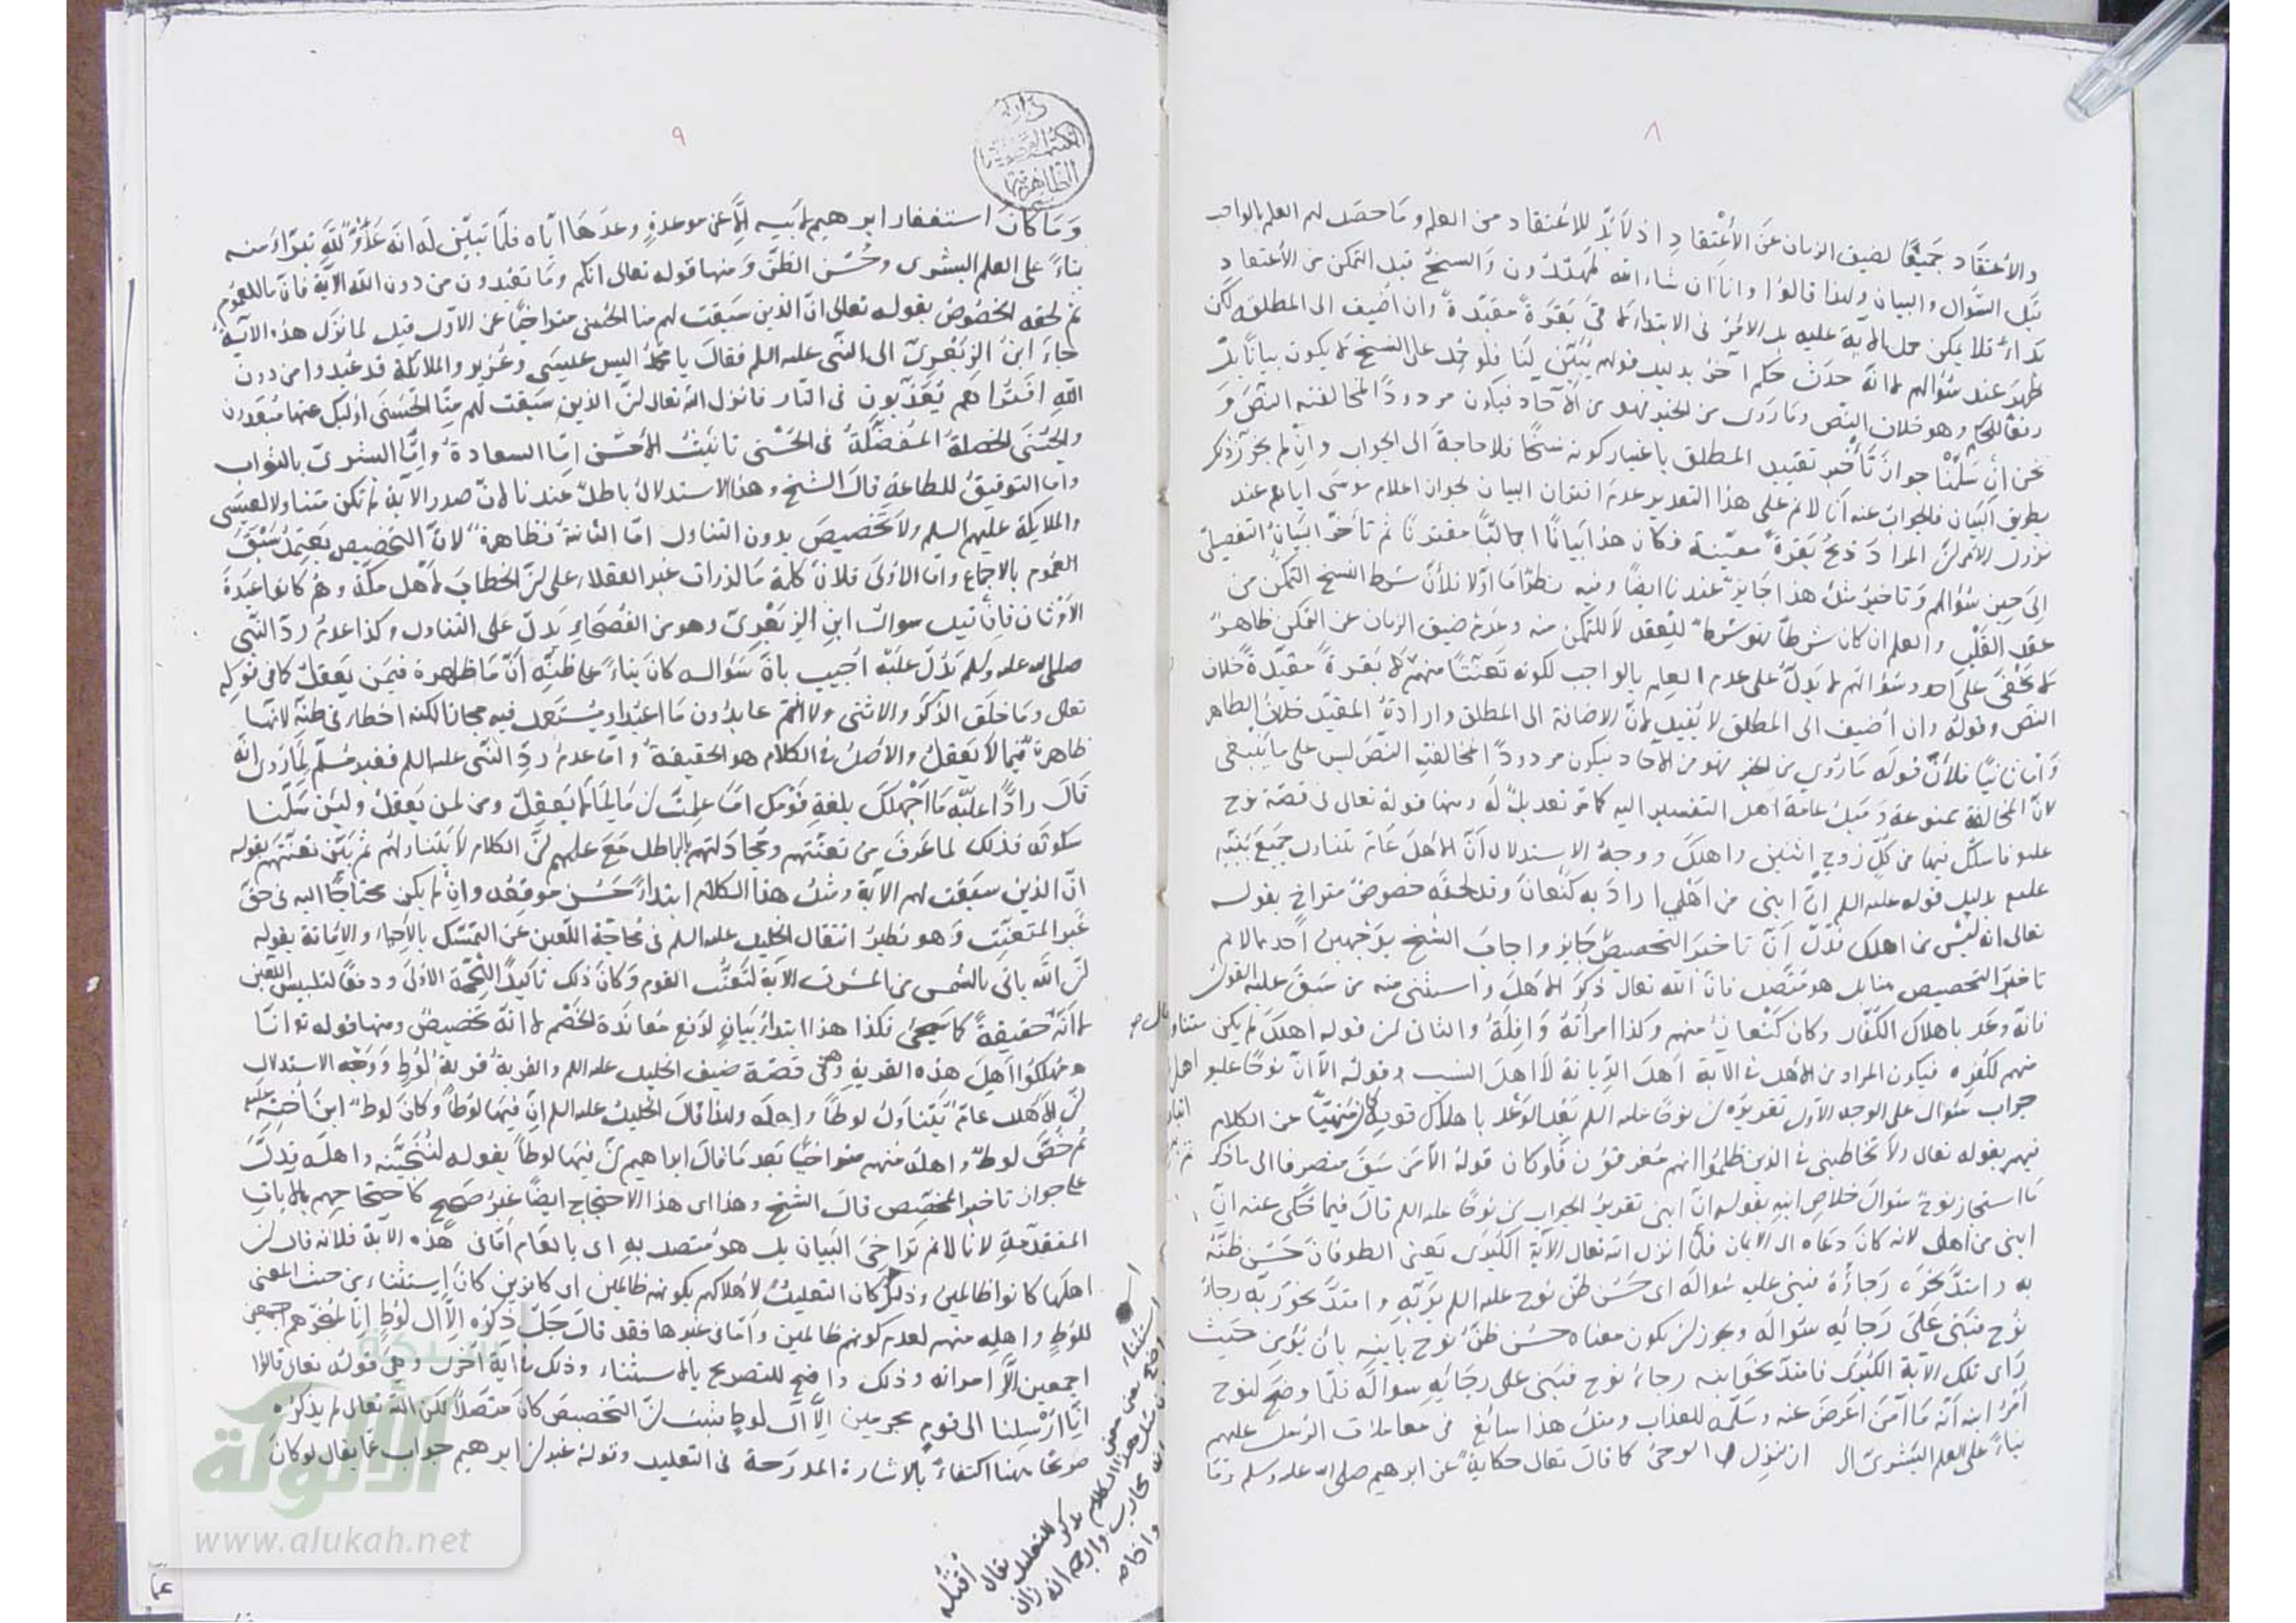 ٨
والاعتقاد جميعًا لضيق الزمان عن الأعتقاد اذ لا بدّ للاعتقاد من العلم وما حصل لهم العلم بالواجب
قبل السؤال والبيان ولهذا قالوا وانا ان شاء الله لمهتدون والنسخ قبل التمكن من الأعتقاد
بداء فلا يمكن حمل الآية عليه بل الامر في الابتداء لا في بقرة مقيدة وان اضيف الى المطلق لكن
ظهر عند سؤالهم لانه حدث حكم آخر بدليل قولهم يبين لنا فلو حمل على النسخ لا يكون بيانا بل
رفعا للحكم وهو خلاف النص وما روى من الخبر فهو من الآحاد فيكون مردودًا لمخالفته النص و
نحن ان سلمنا جواز تأخير تقييد المطلق باعتبار كونه نسخًا فلا حاجة الى الجواب وان لم يجز ذكر
بطريق البيان فالجواب عنه انا لا نم على هذا التقدير عدم اقتران البيان لجواز اعلام موسى اياهم عند
نزول الامر لن المراد ذبح بقرة معينة فكان هذا بيانًا اجماليًا مقترنًا ثم تأخر البيان التفصيلي
الى حين سؤالهم وتاخير مثل هذا جايز عندنا ايضًا وفيه نظر اما اولا فلأن شرط النسخ التمكن من
عقد القلب والعلم ان كان شرطا فهو شرط ليعقد لا للتمكن منه وعدم ضيق الزمان عن التمكن ظاهر
لا يخفى على احد وسؤالهم لا يدل على عدم العلم بالواجب لكونه تعنتًا منهم لا بقرة مقيدة خلاف
النص وقوله وان أضيف الى المطلق لا يفيد لان الاضافة الى المطلق وارادة المقيد خلاف الظاهر
واما ثانيًا فلأن قوله ما روي من الخبر فهو من الآحاد فيكون مردودًا لمخالفته النص ليس على ما ينبغي
لان المخالفة ممنوعة وميل عامة اهل التفسير اليه كما مر تعديل له ومنها قوله تعالى في قصة نوح
عليه فاسلك فيها من كل زوجين اثنين واهلك ووجه الاستدلال ان الأهل عام تتناول جميع بنيه
عليهم بدليل قوله عليه السلم ان ابني من اهلي اراد به كنعان وقد لحقه خصوص متراخ بقوله
تعالى انه ليس من اهلك فدل ان تاخير التخصيص جايز واجاب الشيخ بوجهين احدهما لا نم
تاخير التخصيص منا بل هو متصل فان الله تعالى ذكر الاهل واستثنى منه من سبق عليه القول
فانه وعد باهلاك الكفار وكان كنعان منهم وكذا امرأته وافلة والثاني لن قوله اهلك لم يكن متناولا
منهم لكفره فيكون المراد من الأهل في الآية اهل الديانة لا اهل النسب وقوله الا ان نوحًا عليه
جواب سؤال على الوجه الأول تقديره لن نوحًا عليه السلم بعد الوعد باهلاك قومه كان منهيًا عن الكلام
فيهم بقوله تعالى ولا تخاطبني في الذين ظلموا انهم مغرقون فلو كان قوله الا من سبق منصرفا الى ما ذكر
ما استجاز نوح سؤال خلاص ابنه بقوله ان ابني تقدير الجواب لن نوحًا عليه السلم قال فيما حكى عنه ان
ابني من اهلي لانه كان دعاه الى الايمان فلما انزل الله تعالى الآية الكبرى يعني الطوفان حسن ظنه
به وامتد نحوه رجاؤه فبنى عليه سؤاله اى حسن ظن نوح عليه السلم بربه وامتد نحو ربه رجاء
نوح فبنى على رجائه سؤاله وجوز لن يكون معناه حسن ظن نوح بابنه بان يؤمن حيث
رأى تلك الآية الكبرى فامتد نحو ابنه رجاء نوح فبنى على رجائه سؤاله فلما وضح لنوح
أمر ابنه أنه ما آمن اعرض عنه وسلمه للعذاب ومثل هذا سائغ في معاملات الرسل عليهم
بناءً على العلم البشرى الى ان نزل الوحى كما قال تعالى حكاية عن ابرهيم صلى الله عليه وسلم وما
٩
وما كان استغفار ابرهيم لابيه الا عن موعدة وعدها اياه فلما تبين له انه عدو لله تبرأ منه
بناءً على العلم البشرى وحسن الظن ومنها قوله تعالى انكم وما تعبدون من دون الله الآية فان
ثم لحقه الخصوص بقوله تعالى ان الذين سبقت لهم منا الحسنى متراخيًا عن الاول قيل لما نزل هذه الآية
جاء ابن الزبعرى الى النبي عليه السلم فقال يا محمد اليس عيسى وعزير والملائكة قد عبدوا من دون
الله افتراهم يعذبون في النار فانزل الله تعالى لن الذين سبقت لهم منا الحسنى اولئك عنها مبعدون
والحسنى الخصلة المفضلة في الحسنى تانيث الأحسن اما السعادة واما البشرى بالثواب
واما التوفيق للطاعة قال الشيخ وهذا الاستدلال باطل عندنا لان صدر الآية لم تكن متناولا لعيسى
والملايكة عليهم السلم ولا تخصيص بدون التناول اما الثانية فظاهرة لان التخصيص يعتمد سبق
العموم بالاجماع واما الاولى فلان كلمة ما لذوات غير العقلاء على لن الخطاب لأهل مكة وهم كانوا عبدة
الاوثان فان قيل سؤال ابن الزبعرى وهو من الفصحاء يدل على التناول وكذا عدم رد النبي
صلى الله عليه وسلم يدل عليه اجيب بان سؤاله كان بناءً على ظنه ان ما ظاهرة فيمن يعقل كما في قوله
تعالى وما خلق الذكر والانثى ولا انتم عابدون ما اعبد او يستعمل فيه مجازا لكنه اخطا في ظنه لانها
ظاهرة فيما لا يعقل والاصل في الكلام هو الحقيقة واما عدم رد النبي عليه السلم فغير مسلم لما روى انه
قال رادًا عليه ما اجهلك بلغة قومك اما علمت لن ما لما لا يعقل ومن لمن يعقل ولئن سلمنا
سكوته فذلك لما عرف من تعنتهم ومجادلتهم بالباطل مع علمهم لن الكلام لا يتناولهم ثم بين تعنتهم بقوله
ان الذين سبقت لهم الآية ومثل هذا الكلام ابتداءً حسن موقعه وان لم يكن محتاجًا اليه في حق
غير المتعنت وهو نظير انتقال الخليل عليه السلم في محاجة اللعين عن التمسك بالاحياء والاماتة بقوله
لن الله ياتى بالشمس من المشرق الآية لتعنت القوم وكان ذلك تاكيدًا للحجة الاولى ودفعًا لتلبيس اللعين
لا انه حقيقة كما سيجئ فكذا هذا ابتداء بيان لدفع معاندة الخصم لا انه تخصيص ومنها قوله تعالى انا
مهلكوا اهل هذه القرية وهى قصة ضيف الخليل عليه السلم والقرية قرية لوط ووجه الاستدلال
لن الأهل عام يتناول لوطًا واهله ولهذا قال الخليل عليه السلم ان فيها لوطًا وكان لوط ابن أخيه
ثم خص لوط واهله منهم متراخيًا بعد ما قال ابراهيم لن فيها لوطًا بقوله لننجينه واهله فدل
على جواز تاخير المخصص قال الشيخ وهذا اى هذا الاحتجاج ايضًا غير صحيح كاحتجاجهم بالآيات
المتقدمة لانا لا نم تراخى البيان بل هو متصل به اى بالعام اما في هذه الآية فلانه قال لن
اهلها كانوا ظالمين وذلك كان التعليل لاهلاكهم بكونهم ظالمين اى كافرين كان استثناء من حيث المعنى
للوط واهله منهم لعدم كونهم ظالمين واما في غيرها فقد قال جل ذكره الا ال لوط انا لمنجوهم اجمعين
اجمعين الا امراته وذلك واضح للتصريح بالاستثناء وذلك في آية اخرى وهى قوله تعالى قالوا
انا ارسلنا الى قوم مجرمين الا آل لوط فثبت لن التخصيص كان متصلا لكن الله تعالى لم يذكره
صريحًا ههنا اكتفاءً بالاشارة المدرجة في التعليل وقوله غير لن ابرهيم جواب عما يقال لو كان
الألوكة
www.alukah.net